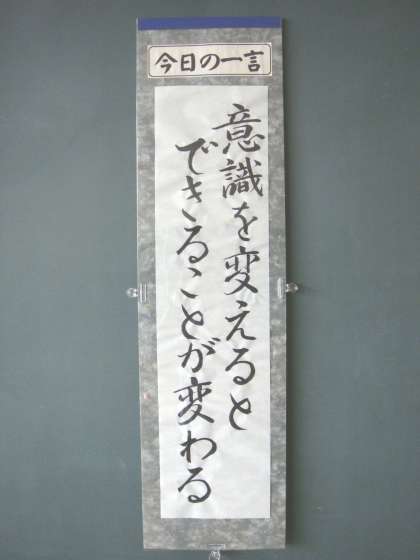 今日の一言
意識を変えると
できることが変わる